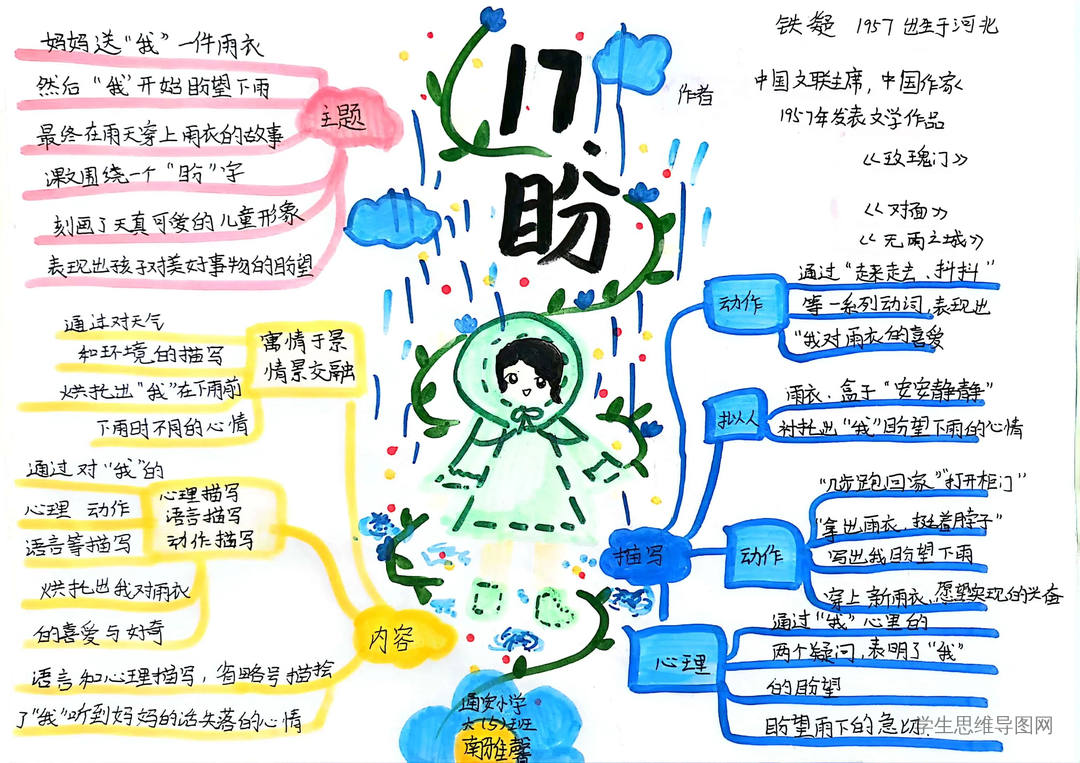 17、
盼
作者
铁凝 1957 出生于河北
中国文联主席，中国作家
1957年发表文学作品
《玫瑰门》
《对面》
《无雨之城》
主题
妈妈送“我”一件雨衣
然后“我”开始盼望下雨
最终在雨天穿上雨衣的故事
课文围绕一个“盼”字
刻画了天真可爱的儿童形象
表现出孩子对美好事物的盼望
寓情于景
情景交融
通过对天气
和环境的描写
烘托出“我”在下雨前
下雨时不同的心情
心理描写
语言描写
动作描写
通过对“我”的
心理 动作
语言等描写
烘托出我对雨衣
的喜爱与好奇
内容
语言和心理描写，省略号描绘
了“我”听到妈妈的话失落的心情
描写
动作
通过“走来走去、抖抖”
等一系列动词，表现出
“我对雨衣的喜爱
拟人
雨衣、盒子“安安静静”
衬托出“我”盼望下雨的心情
动作
“几步跑回家”“打开柜门”
“拿出雨衣，挺着脖子”
写出我盼望下雨
穿上新雨衣、愿望实现的兴奋
心理
通过“我”心里的
两个疑问，表明了“我”
的盼望
盼望雨下的急切.
通安小学
六（5）班
南雅馨
学生思维导图网